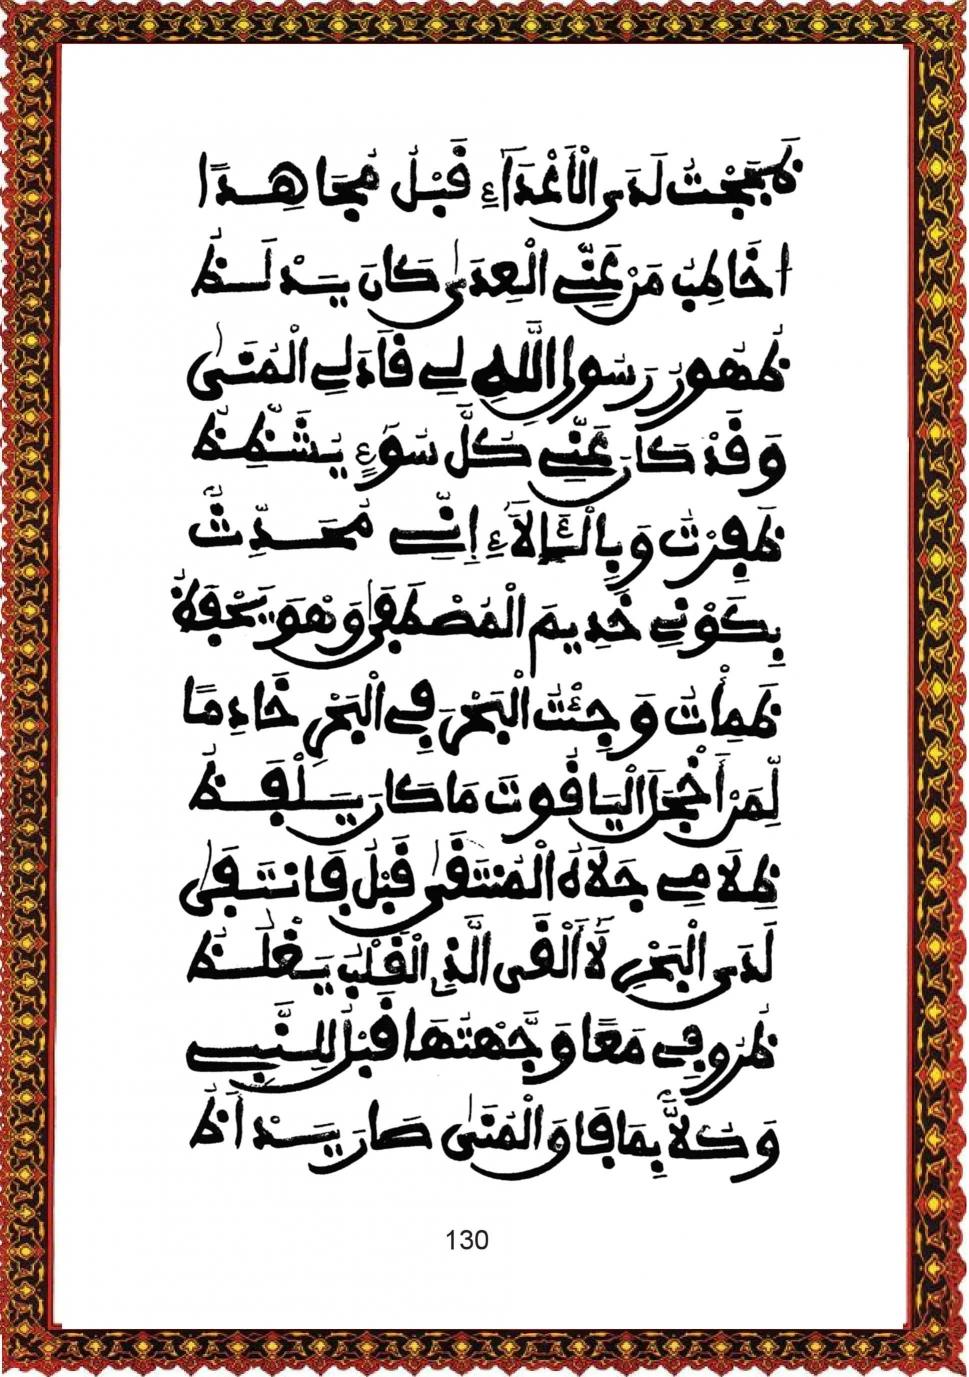 لَدَى الْأَعْدَاءِ قَبْلُ مُجَاهِدًا
أخَاطِبُ مَنْ عَنِّي الْعِدَى كَانَ يَدْلَظُ
ظُهُورُ رَسُولِ اللَّهِ لِي قَادَ لِي الْمُنَى
وَقَدْ كَانَ عَنِّي كُلَّ سُوءٍ يُشَظِّظُ
ظَفِرْتُ وَبِالْآلَاءِ إِنِّي مُحَدِّثٌ
بِكَوْنِي خَدِيمَ الْمُصْطَفَى وَهْوَ يَحْفَظُ
ظَمِأْتُ وَجِئْتُ الْبَحْرَ فِي الْبَحْرِ خَادِمًا
لِّمَنْ أَخْجَلَ الْيَاقُوتَ مَا كَانَ يَلْفِظُ
ظَلَامِي جَلَاهُ الْمُنْتَقَى قَبْلُ فَانتَفَى
لَدَى الْبَحْرِ لَا أَلْقَى الَّذِي الْقَلْبُ يَغْلُظُ
ظُرُوفِي مَعًا وَجَّهْتُهَا قَبْلُ لِلنَّبِي
وَكُلًّا بِمَا فَاقَ الْمُنَى صَارَ يَدْأَظُ
130